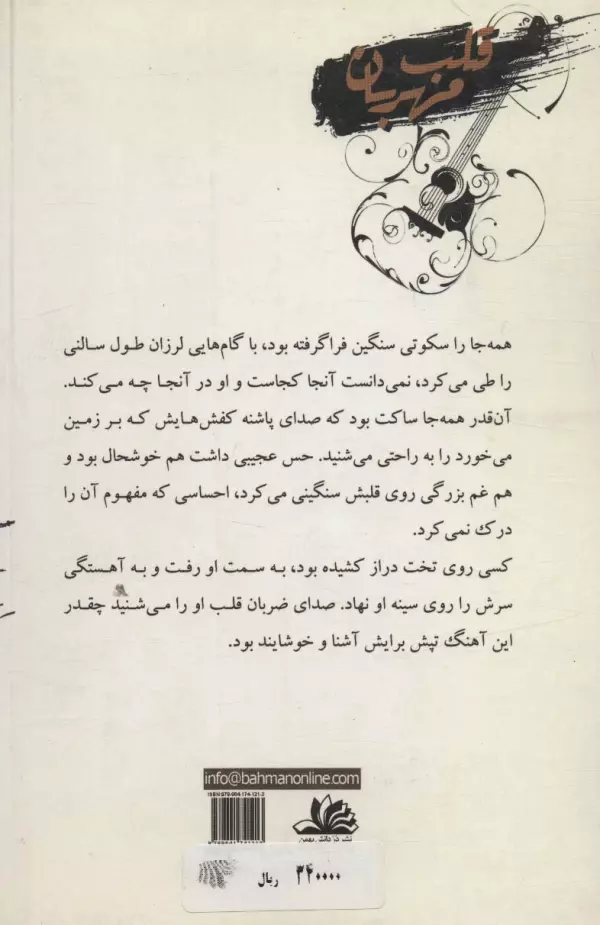 قلب
مهربان
همه‌جا را سکوتی سنگین فراگرفته بود، با گام‌هایی لرزان طول سالنی
را طی می‌کرد، نمی‌دانست آنجا کجاست و او در آنجا چه می‌کند.
آن‌قدر همه‌جا ساکت بود که صدای پاشنه کفش‌هایش که بر زمین
می‌خورد را به راحتی می‌شنید. حس عجیبی داشت هم خوشحال بود و
هم غم بزرگی روی قلبش سنگینی می‌کرد، احساسی که مفهوم آن را
درک نمی‌کرد.
کسی روی تخت دراز کشیده بود، به سمت او رفت و به آهستگی
سرش را روی سینه او نهاد. صدای ضربان قلب او را می‌شنید چقدر
این آهنگ تپش برایش آشنا و خوشایند بود.
info@bahmanonline.com
ISBN 978-964-174-121-2
۳۴۰۰۰۰ ریال